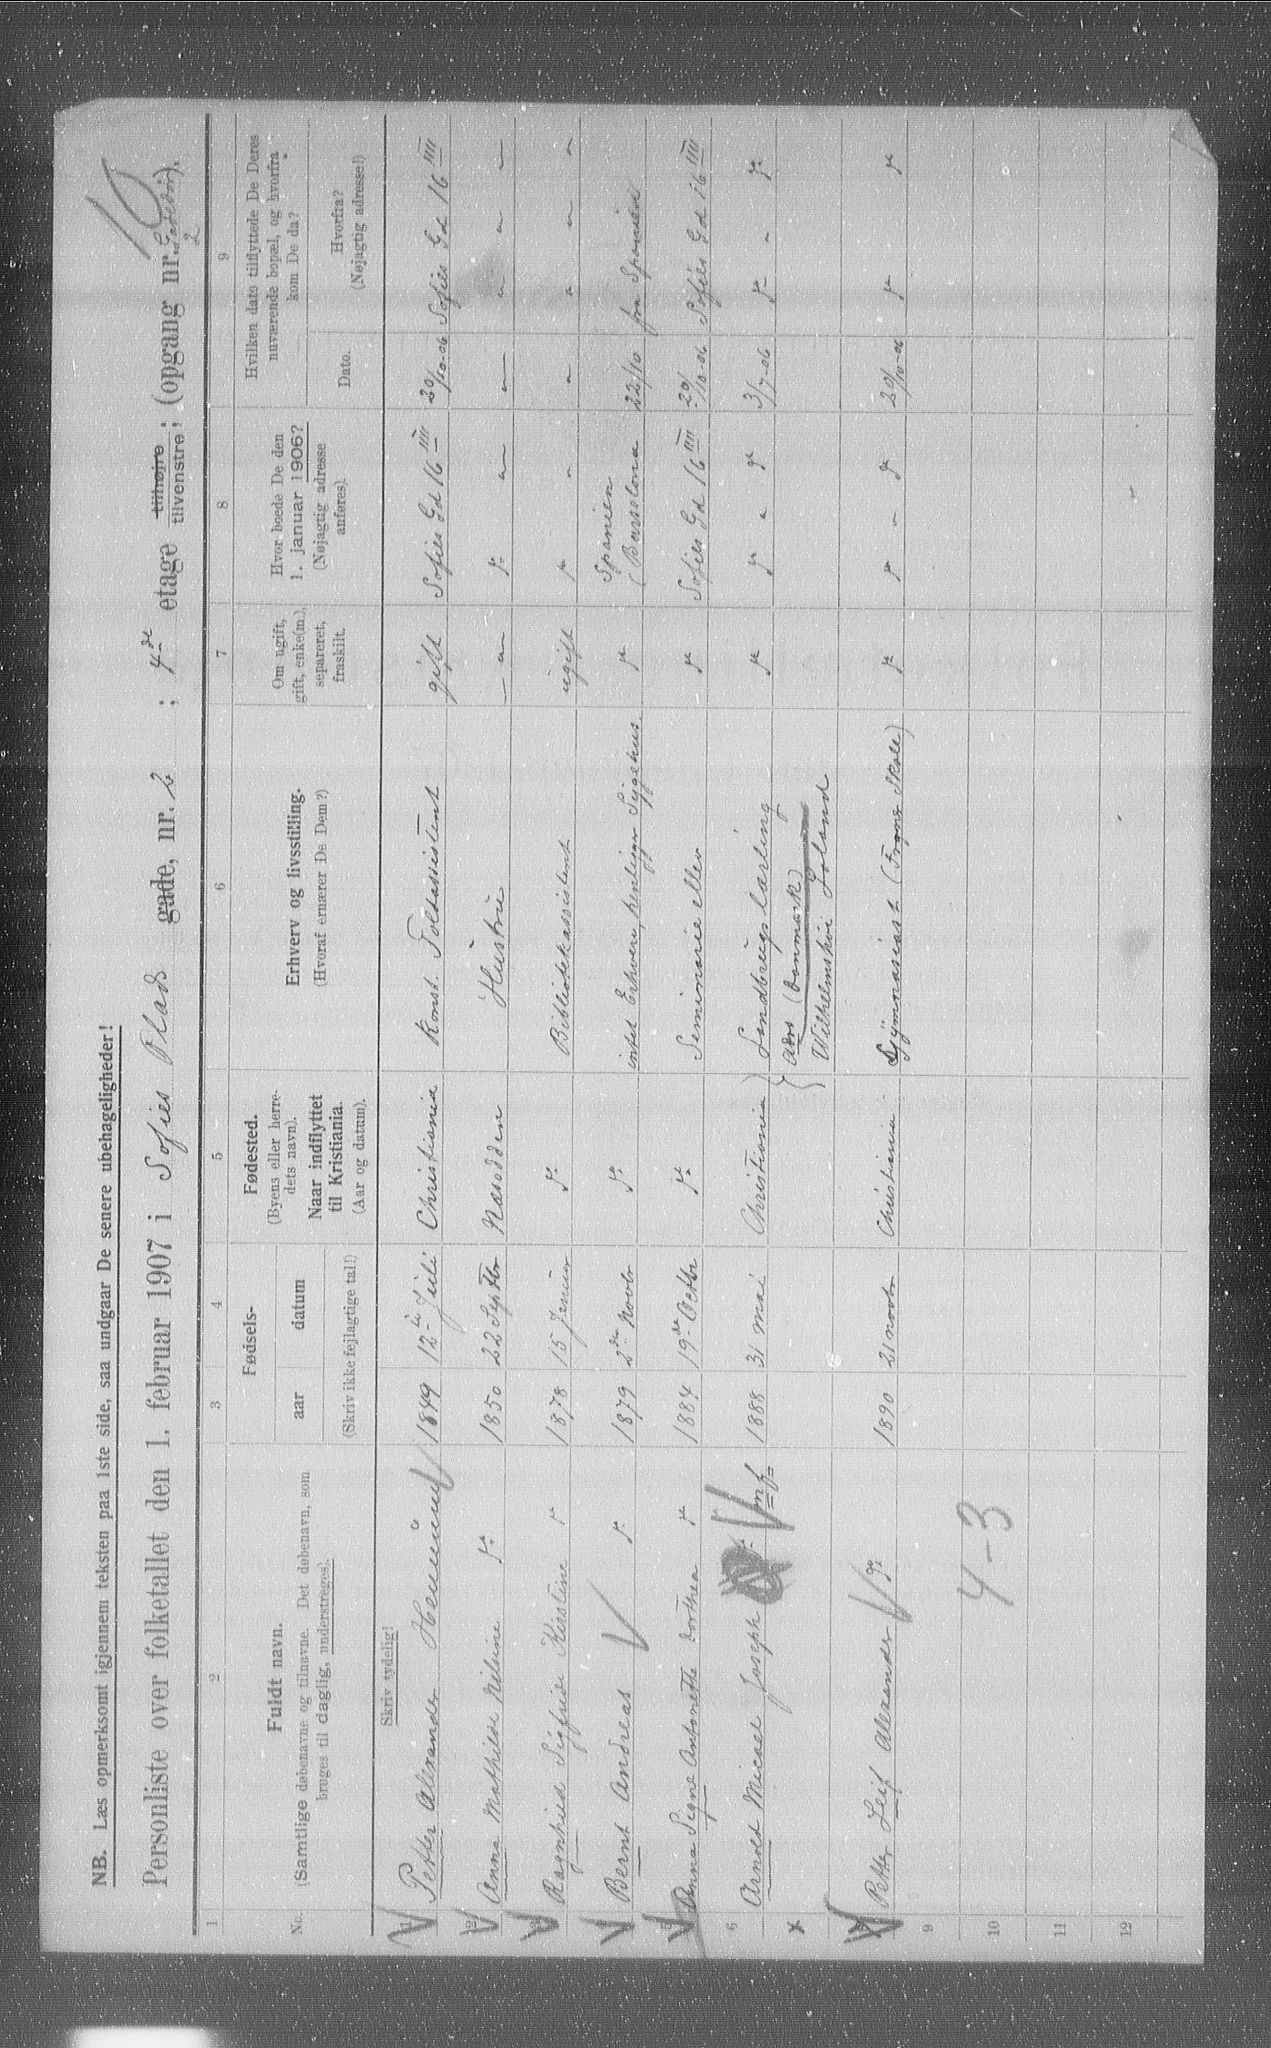 NB. Læs opmerksomt igjennem teksten paa 1ste side, saa undgaar De senere ubehageligheder!
Personliste over folketallet den 1. februar 1907 i Sofies Plads gade, nr. 2 ; 4de etage tilhøire tilvenstre; (opgang nr. 2 ).
1 2 3 4 5 6 7 8 9
No.
Fuldt navn.
(Samtlige døbenavne og tilnavne. Det døbenavn, som
bruges til daglig, understreges).
Fødsels-
aar datum
(Skriv ikke feilagtige tal!)
Fødested.
(Byens eller herre-
dets navn).
Naar indflyttet
til Kristiania.
(Aar og datum).
Erhverv og livsstilling.
(Hvoraf ernærer De Dem?)
Om ugift,
gift, enke(m.),
separeret,
fraskilt.
Hvor boede De den
1. januar 1906?
(Nøjagtig adresse
anføres).
Hvilken dato tilflyttede De Deres
nuværende bopæl, og hvorfra
kom De da?
Dato.
Hvorfra?
(Nøjagtig adresse!)
Skriv tydelig!
1 Petter Alexander 1849 12te Juli Christiania Konst. Toldassistent gift Sofies Gd 16 IIII 20/10-06 Sofies Gd 16 IIII
2 Anna Mathilde Nilsine do 1850 22 Septbr Næsodden Hustru — " — do " 
3 Ragnhild Sigfride Kirstine " 1878 15 Januar do Bibliotekassistent ugift
4 Bernt Andreas do 1879 2den Novbr do intet Erhverv, Sygehus do Spanien
(Barselona 22/10 fra Spanien
5 Anna Signe Antonette Dorthea " 1884 19de Octbr do Seminarieelev do Sofies Gd 16 IIII 20/10-06 Sofies Gd 16 IIII
6 Arnold Micael Joseph do mf 1888 31 mai Christiania Landbrugslærling do do " do 3/7-06 do " do
(Danmark)
Wilhelmshøi
8 Petter Leif Alexander do 1890 21 novbr Christiania Gymnasiast (Frogner Skole) do do " do 20/10-06 do do
9
10
4-3
11
12